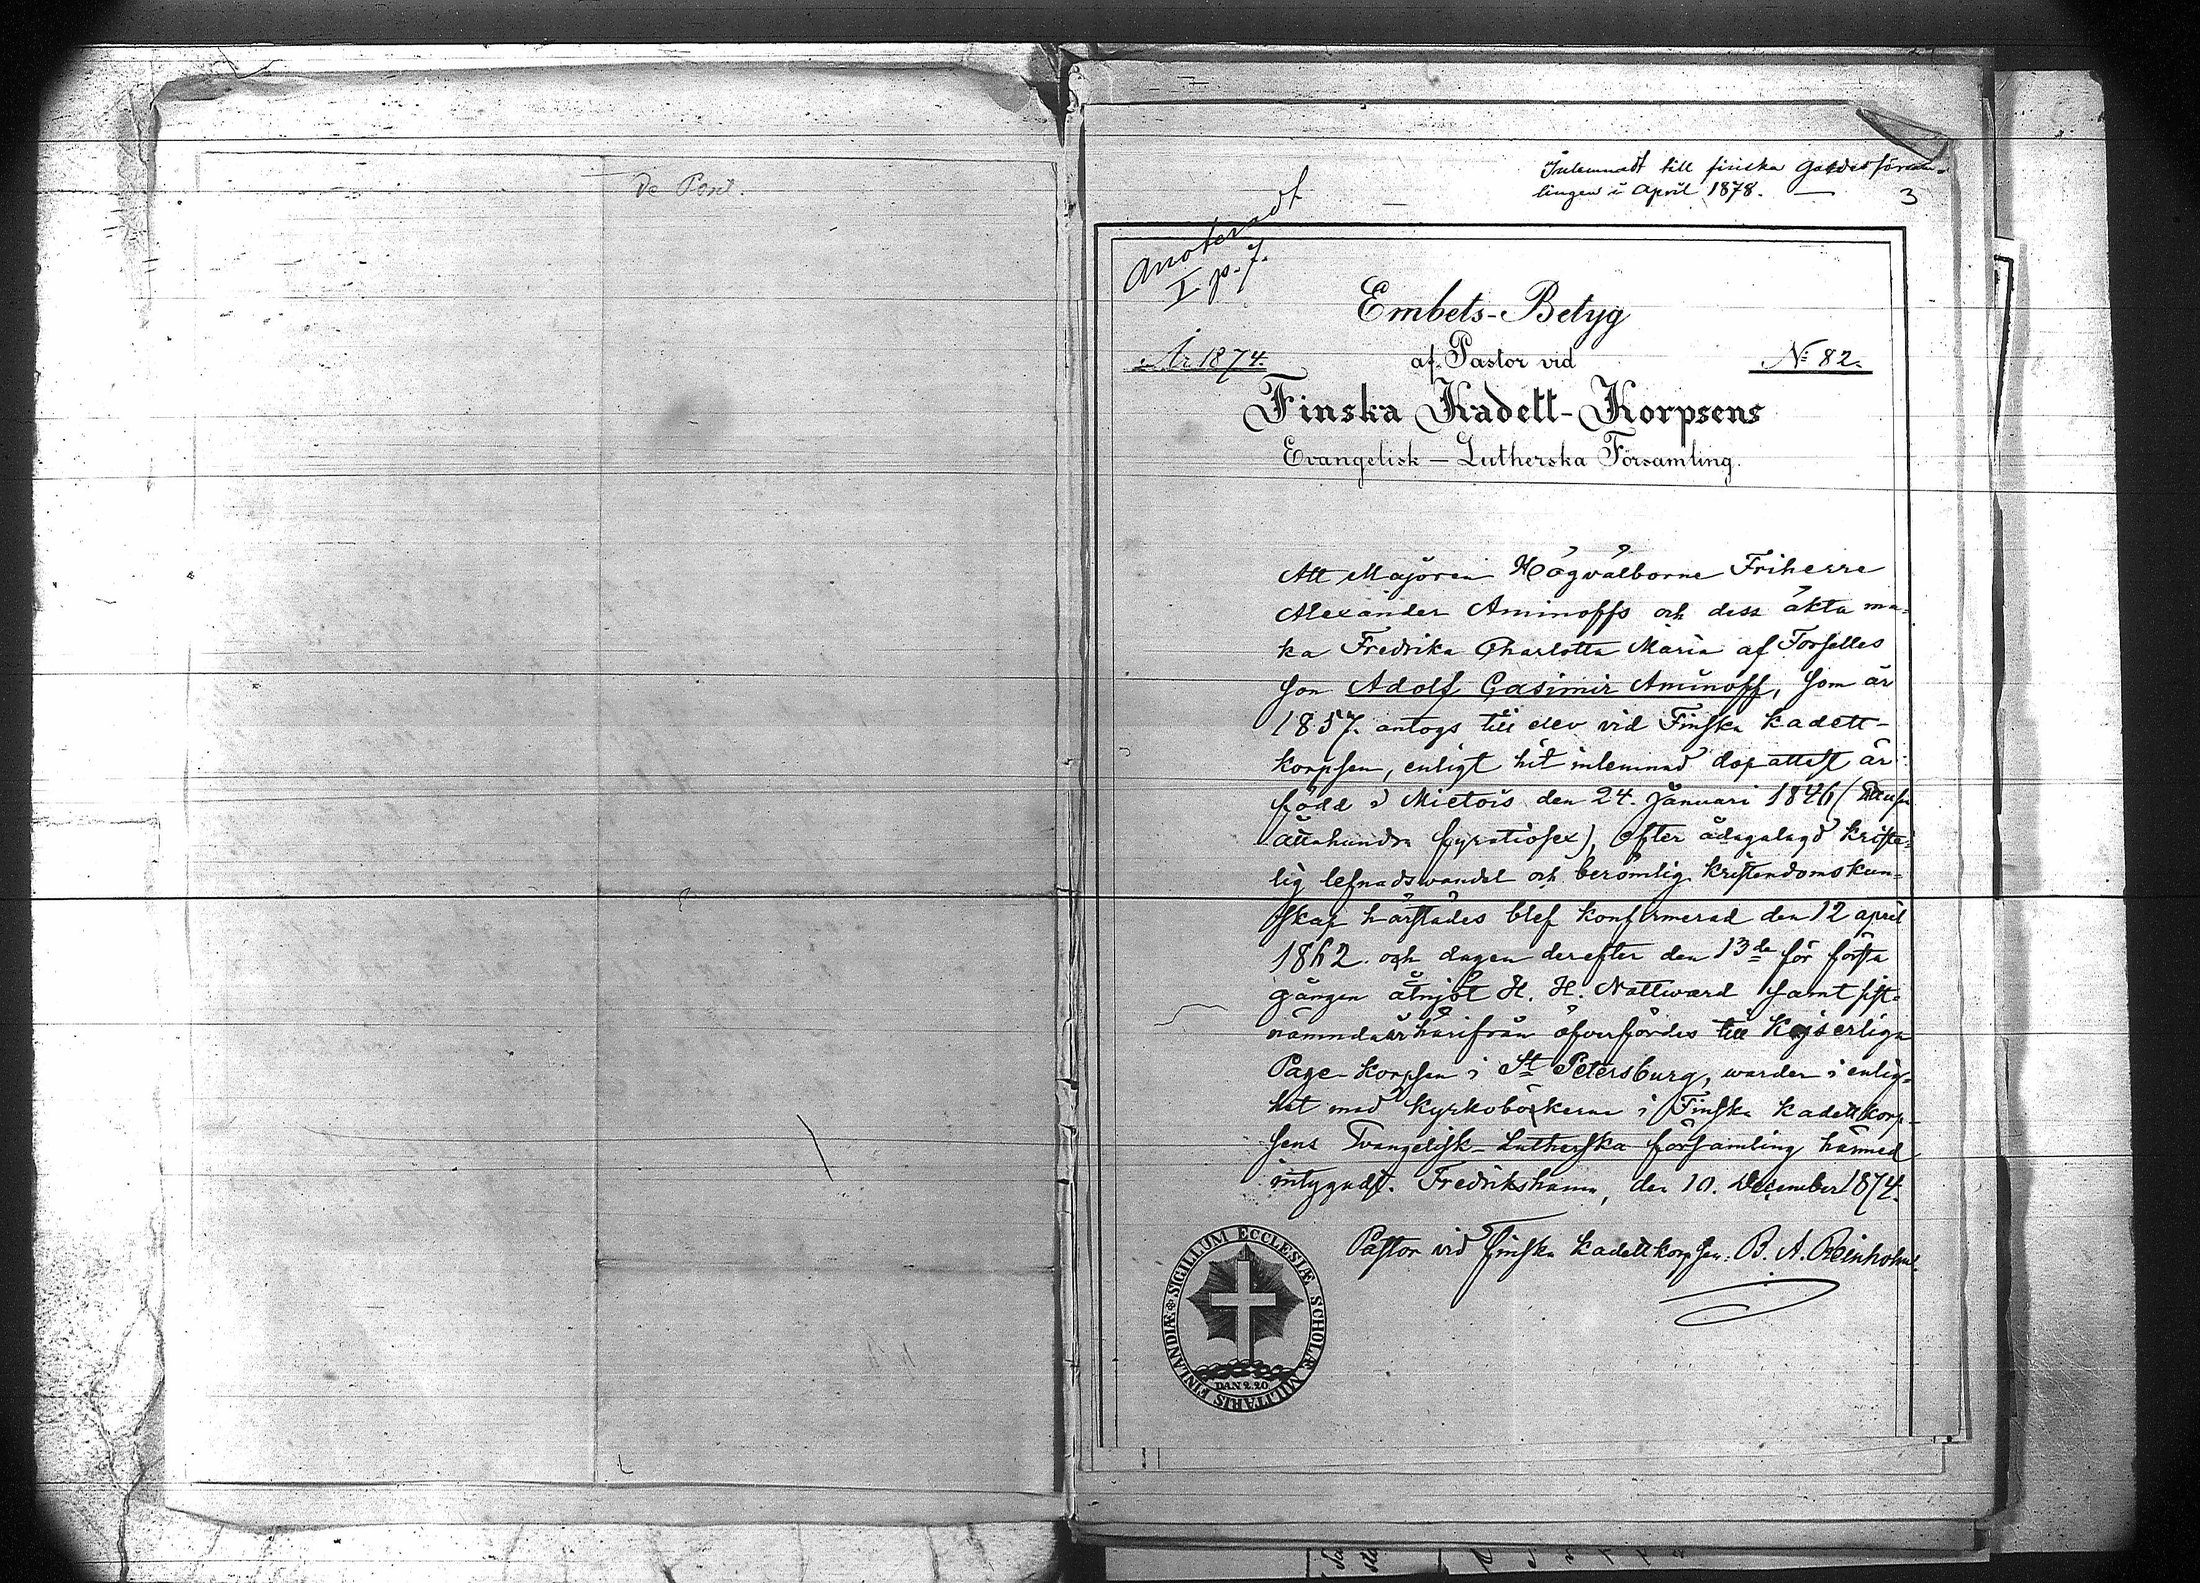 De Pont.
Inlemnadt till finska Gardesförsam-
lingen i April 1878. —
3
Anoteradt
I p. 7.
Embets-Betyg
År 1874.
af Pastor vid
No 82.
Finska Kadett-Korpsens
Evangelisk-Lutherska Församling.
Att Majoren Högvälborne Friherre
Alexander Aminoffs och dess äkta ma-
ka Fredrika Charlotta Maria af Forselles
son Adolf Casimir Aminoff, som år
1857. antogs till elev vid Finska kadett-
korpsen, enligt hit inlemnad dopattest är
född i Mietois den 24. Januari 1846 (Ettusen
åttahundra fyratiosex), efter ådagalagd kriste-
lig lefnadsvandel och berömlig kristendomskun-
skap härstädes blef konfirmerad den 12 april
1862. och dagen derefter den 13de för första
gången åtnjöt H. H. Nattward samt sist-
nämnda år härifrån öfverfördes till Kejserliga
Page-korpsen i St Petersburg, warder i enlig-
het med kyrkoböckerne i Finska kadettkorp-
sens Evangelisk-Lutherska församling härmed
intygadt. Fredrikshamn, den 10. December 1874.
Pastor vid Finska kadettkorpsen: B. A. Reinholm.
SIGILLUM ECCLESIÆ SCHOLÆ MILITARIS FINLANDIÆ
DAN 2.20